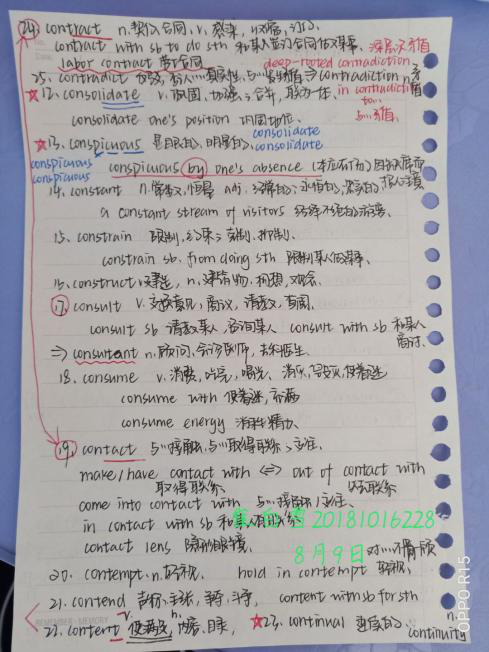 24. contract n.契约,合同, v.感染, 收缩, 订
contract with sb to do sth 和某人签订合同做某事. 深层矛盾
labor contract 劳动合同 deep-rooted contradiction
25. contradict 与…矛盾 ⇒ contradiction n.矛盾
☆12. consolidate v.巩固, 加强; 合并, in contradiction to... 与…矛盾.
consolidate one's position 巩固地位 consolidate
☆13. conspicuous 显眼的, 明显的 consolidate
conspicuous conspicuous by one's absence
conspicuous
14. constant n.常数, 恒量 adj. 经常的; 永恒的
a constant stream of visitors 络绎不绝的游客
15. constrain 限制, 约束; 克制, 抑制.
constrain sb. from doing sth 限制某人做某事.
16. construct v.建造, n.建筑物, 构想, 观念.
17. consult v.交换意见, 商议, 请教, 查阅.
consult sb 请教某人, 咨询某人 consult with sb 和某人商讨.
⇒ consultant n.顾问, 会诊医师,
18. consume v.消费, 吃完, 喝光, 消灭, 毁灭, 使着迷
consume with 使着迷, 充满
consume energy 消耗精力
19. contact 与…接触, 与…取得联系; 交往.
make/have contact with ⇔ out of contact with
取得联系 失去联系
come into contact with 与…接触/交往.
in contact with sb 和某人有联系
20181016228
contact lens 隐形眼镜.
8月9日 对…不屑一顾
20. contempt. n.轻视. hold in contempt 轻视.
21. contend 主张, 争夺, 斗争, contend with sb for sth
22. content v.使满足, n.内容, 目录, ☆23. continual 连续的; n. continuity
REMEMBER·MEMORY
OPPO R15